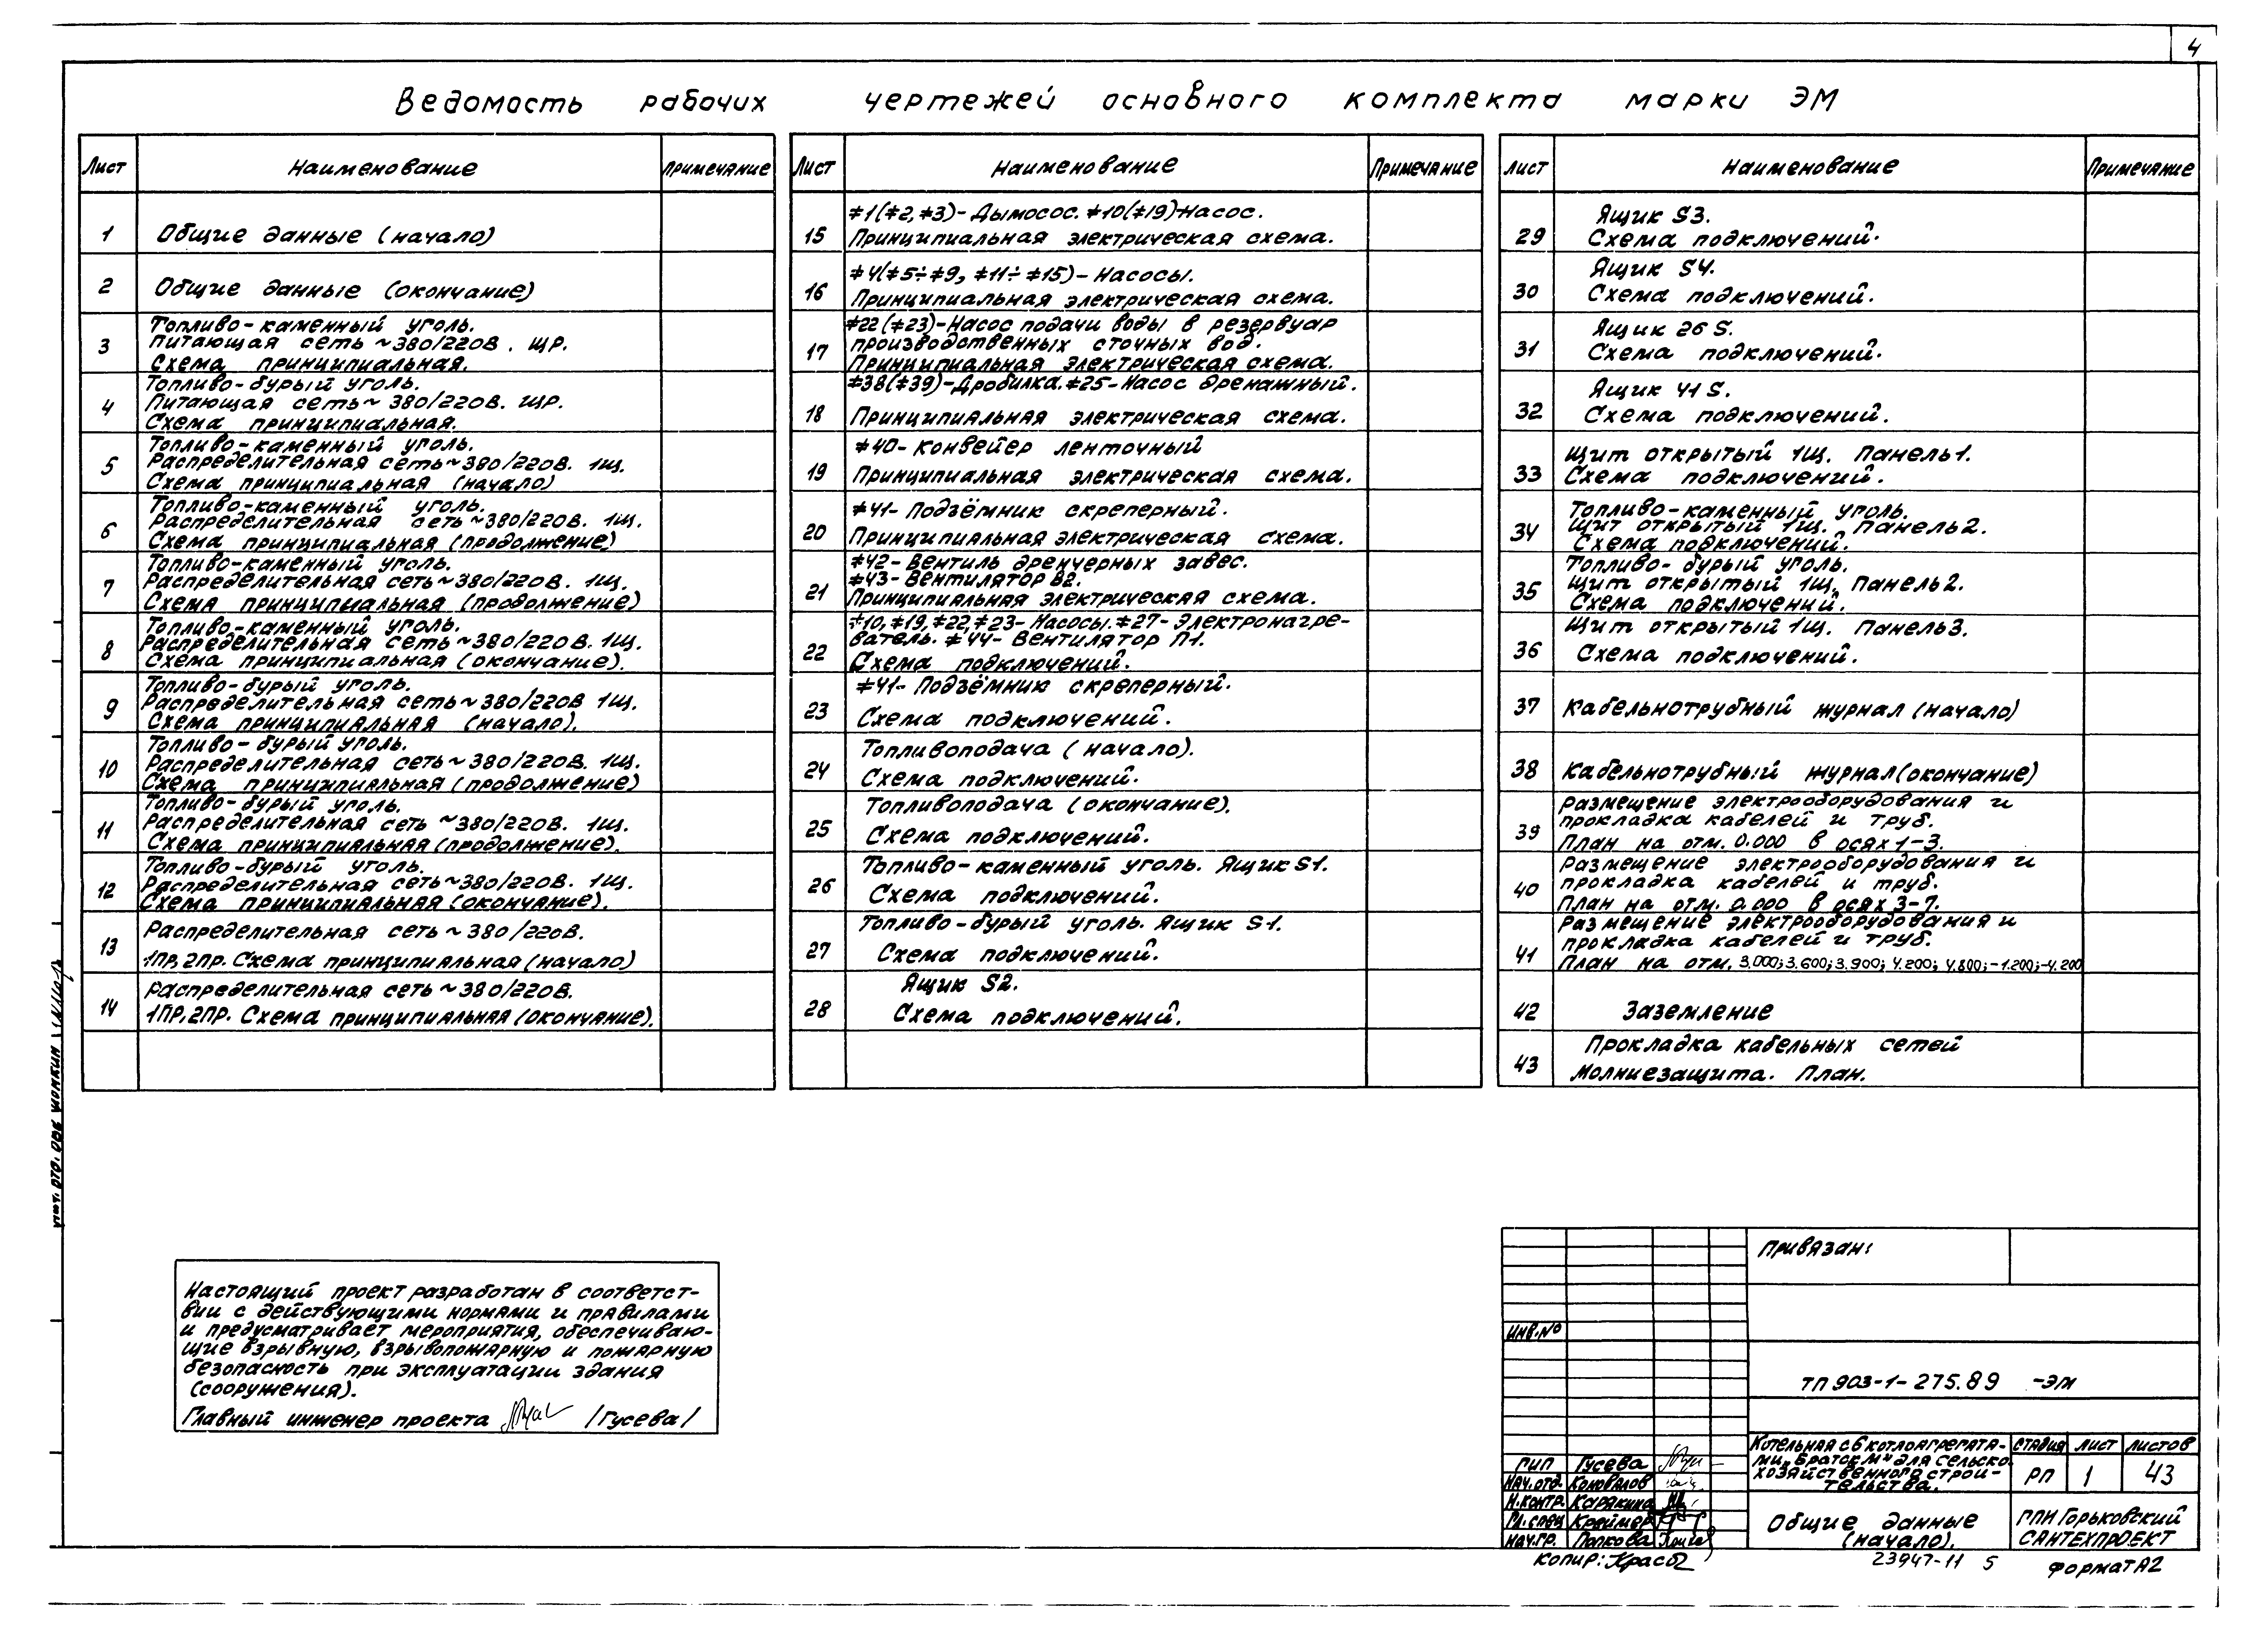 4
Ведомость рабочих чертежей основного комплекта марки ЭМ
Лист Наименование Примечание
1 Общие данные (начало)
2 Общие данные (окончание)
Топливо-каменный уголь.
3 Питающая сеть ~380/220В. ЩР.
Схема принципиальная.
Топливо-бурый уголь.
4 Питающая сеть ~ 380/220В. ЩР.
Схема принципиальная.
Топливо-каменный уголь.
5 Распределительная сеть ~380/220В. 1Щ.
Схема принципиальная (начало)
Топливо-каменный уголь.
6 Распределительная сеть ~380/220В. 1Щ.
Схема принципиальная (продолжение)
Топливо-каменный уголь.
7 Распределительная сеть ~380/220В. 1Щ.
Схема принципиальная (продолжение)
Топливо-каменный уголь.
8 Распределительная сеть ~380/220В. 1Щ.
Схема принципиальная (окончание).
Топливо-бурый уголь.
9 Распределительная сеть ~ 380/220В 1Щ.
Схема принципиальная (начало).
Топливо-бурый уголь.
10 Распределительная сеть ~ 380/220В. 1Щ.
Схема принципиальная (продолжение)
Топливо-бурый уголь.
11 Распределительная сеть ~380/220В. 1Щ.
Схема принципиальная (продолжение).
Топливо-бурый уголь.
12 Распределительная сеть ~380/220В. 1Щ.
Схема принципиальная (окончание).
13 Распределительная сеть ~ 380/220В.
1ПР, 2ПР. Схема принципиальная (начало)
14 Распределительная сеть ~ 380/220В.
1ПР, 2ПР. Схема принципиальная (окончание).
Лист Наименование Примечание
≠1(≠2, ≠3)- Дымосос. ≠10(≠19)-Насос.
15 Принципиальная электрическая схема.
≠4(≠5÷≠9, ≠11÷≠15)- Насосы.
16 Принципиальная электрическая схема.
≠22(≠23)-Насос подачи воды в резервуар
17 производственных сточных вод.
Принципиальная электрическая схема.
≠38(≠39)-Дробилка. ≠25-Насос дренажный.
18 Принципиальная электрическая схема.
≠40- Конвейер ленточный
19 Принципиальная электрическая схема.
≠41- Подзёмник скреперный.
20 Принципиальная электрическая схема.
≠42- Вентиль дренчерных завес.
≠43- Вентилятор В2.
21 Принципиальная электрическая схема.
≠10, ≠19, ≠22, ≠23- Насосы. ≠27- Электронагре-
ватель. ≠44- Вентилятор П1.
22 Схема подключений.
≠41- Подзёмник скреперный.
23 Схема подключений.
Топливоподача (начало).
24 Схема подключений.
Топливоподача (окончание).
25 Схема подключений.
Топливо-каменный уголь. Ящик S1.
26 Схема подключений.
Топливо-бурый уголь. Ящик S1.
27 Схема подключений.
Ящик S2.
28 Схема подключений.
Лист Наименование Примечание
Ящик S3.
29 Схема подключений.
Ящик S4.
30 Схема подключений.
Ящик 26 S.
31 Схема подключений.
Ящик 41 S.
32 Схема подключений.
Щит открытый 1Щ. Панель 1.
33 Схема подключений.
Топливо-каменный уголь.
34 Щит открытый 1Щ. Панель 2.
Схема подключений.
Топливо-бурый уголь.
35 Щит открытый 1Щ. Панель 2.
Схема подключений.
Щит открытый 1Щ. Панель 3.
36 Схема подключений.
37 Кабельнотрубный журнал (начало)
38 Кабельнотрубный журнал (окончание)
Размещение электрооборудования и
прокладка кабелей и труб.
39 План на отм. 0.000 в осях 1-3.
Размещение электрооборудования и
40 прокладка кабелей и труб.
План на отм. 0.000 в осях 3-7.
Размещение электрооборудования и
прокладка кабелей и труб.
41 План на отм. 3.000; 3.600; 3.900; 4.200; 4.800; -1.200; -4.200
42 Заземление
Прокладка кабельных сетей
43 Молниезащита. План.
Настоящий проект разработан в соответст-
вии с действующими нормами и правилами
и предусматривает мероприятия, обеспечиваю-
щие взрывную, взрывопожарную и пожарную
безопасность при эксплуатации здания
(сооружения).
Главный инженер проекта /Гусева/
Привязан:
Инв.№
ТП 903-1-275.89 -ЭМ
Котельная с 6 котлоагрегата-
ми „Братск М" для сельско
хозяйственного строи-
тельства.
Стадия Лист Листов
РП 1 43
ГИП Гусева
Нач.отд. Коновалов
Н.контр. Карякина
Гл.спец Креймер
Нач.гр. Попкова
Общие данные
(начало).
ГПИ Горьковский
САНТЕХПРОЕКТ
Копир:
23947-11 5
Формат А2